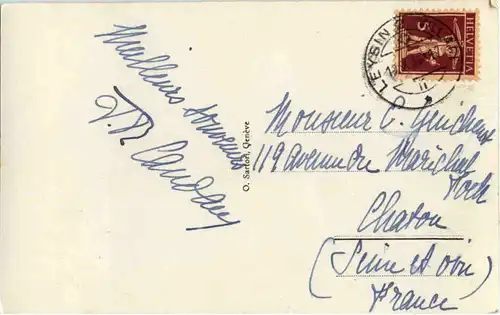 Meilleurs souvenirs
O. Sartori, Genève
HELVETIA
5
LEYSIN
Monsieur
119 avenue du Maréchal
Foch
Chatou
(Seine et oise)
France